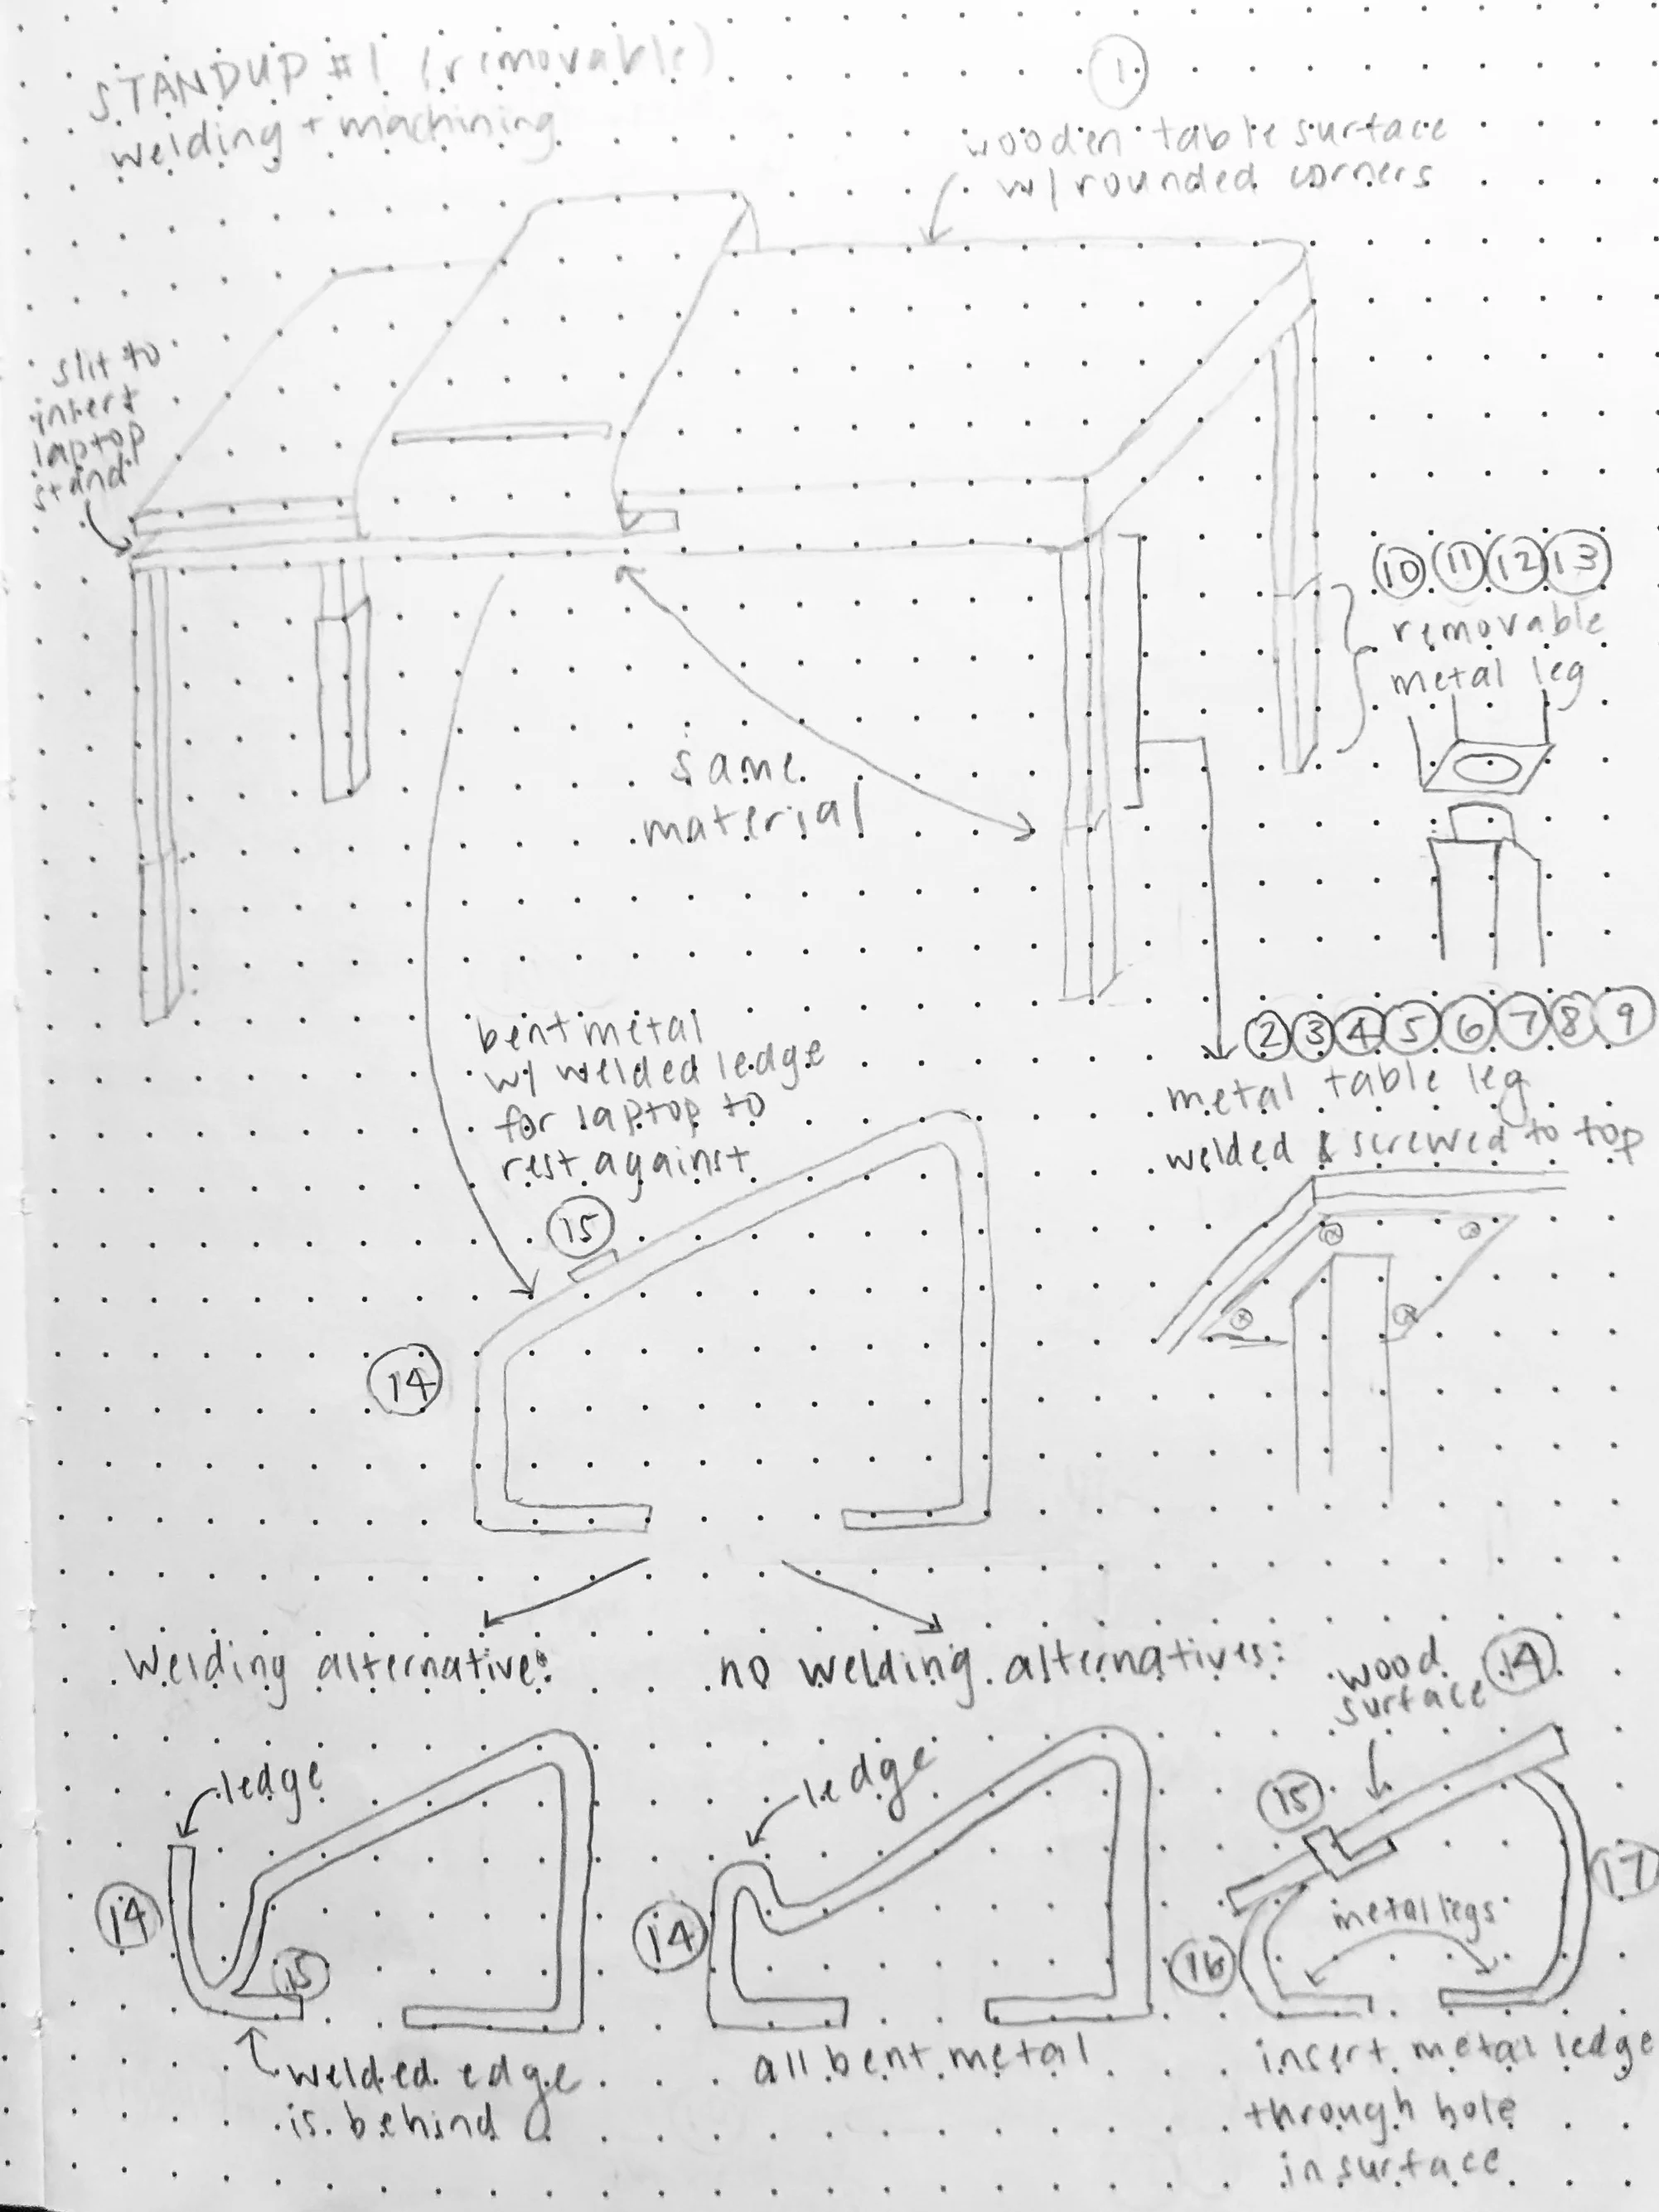 STANDUP #1 (removable)
welding + machining
1
wooden table surface
w/ rounded corners
slit to
insert
laptop
stand
10 11 12 13
removable
metal leg
same
material
2 3 4 5 6 7 8 9
metal table leg
welded & screwed to top
bent metal
w/ welded ledge
for laptop to
rest against
15
14
Welding alternative:
ledge
14
15
welded edge
is behind
no welding alternatives:
ledge
14
all bent metal
wood
surface
14
15
metal legs
16
17
insert metal ledge
through hole
in surface